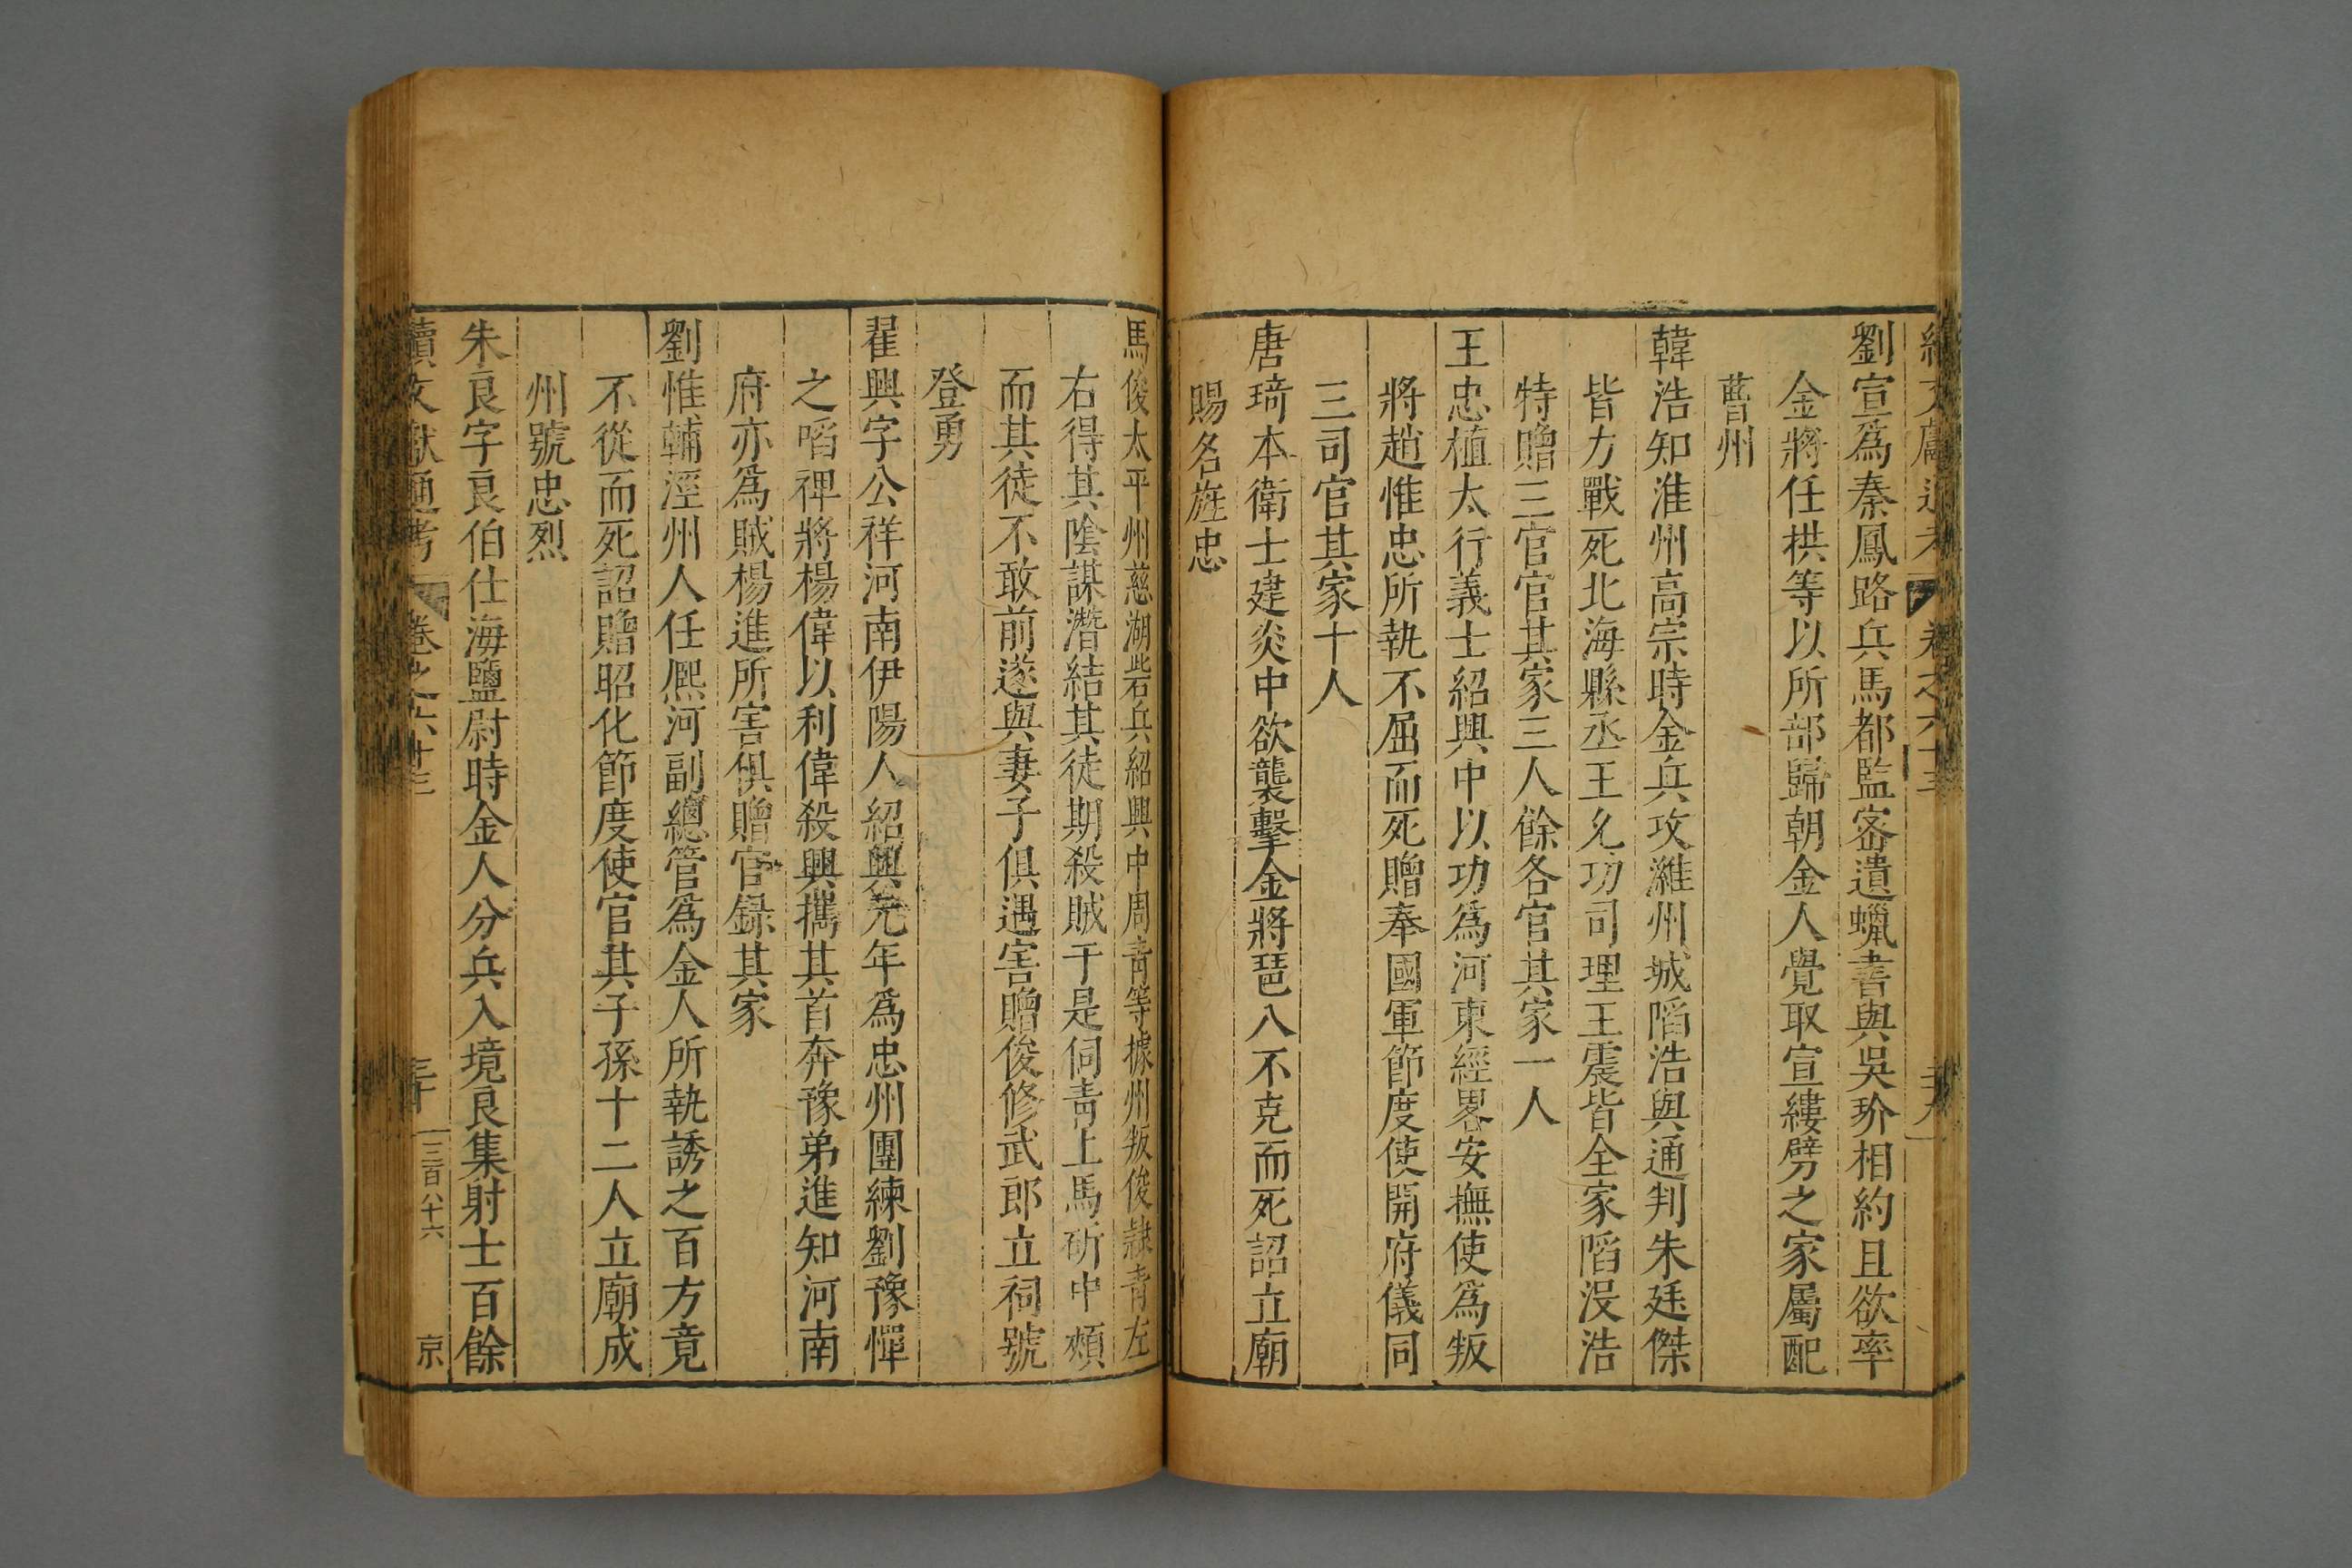 續文獻通考 卷之六十三
劉宣爲秦鳳路兵馬都監宻遺蠟書與吳玠相約且欲率
金將任拱等以所部歸朝金人覺取宣縷劈之家屬配
曹州
韓浩知淮州高宗時金兵攻濰州城陷浩與通判朱廷傑
皆力戰死北海縣丞王允功司理王震皆全家陷没浩
特贈三官官其家三人餘各官其家一人
王忠植太行義士紹興中以功爲河東經畧安撫使爲叛
將趙惟忠所執不屈而死贈奉國軍節度使開府儀同
三司官其家十人
唐琦本衛士建炎中欲襲擊金將琶八不克而死詔立廟
賜名旌忠
馬俊太平州慈湖砦兵紹興中周青等據州叛俊隷青左
右得其陰謀潛結其徒期殺賊于是伺青上馬斫中頰
而其徒不敢前遂與妻子俱遇害贈俊修武郎立祠號
登勇
翟興字公祥河南伊陽人紹興元年爲忠州團練劉豫憚
之啗裨將楊偉以利偉殺興攜其首奔豫弟進知河南
府亦爲賊楊進所害俱贈官録其家
劉惟輔涇州人任熈河副總管爲金人所執誘之百方竟
不從而死詔贈昭化節度使官其子孫十二人立廟成
州號忠烈
朱良字良伯仕海鹽尉時金人分兵入境良集射士百餘
續文獻通考 卷之六十三 三十 三百八十六 京